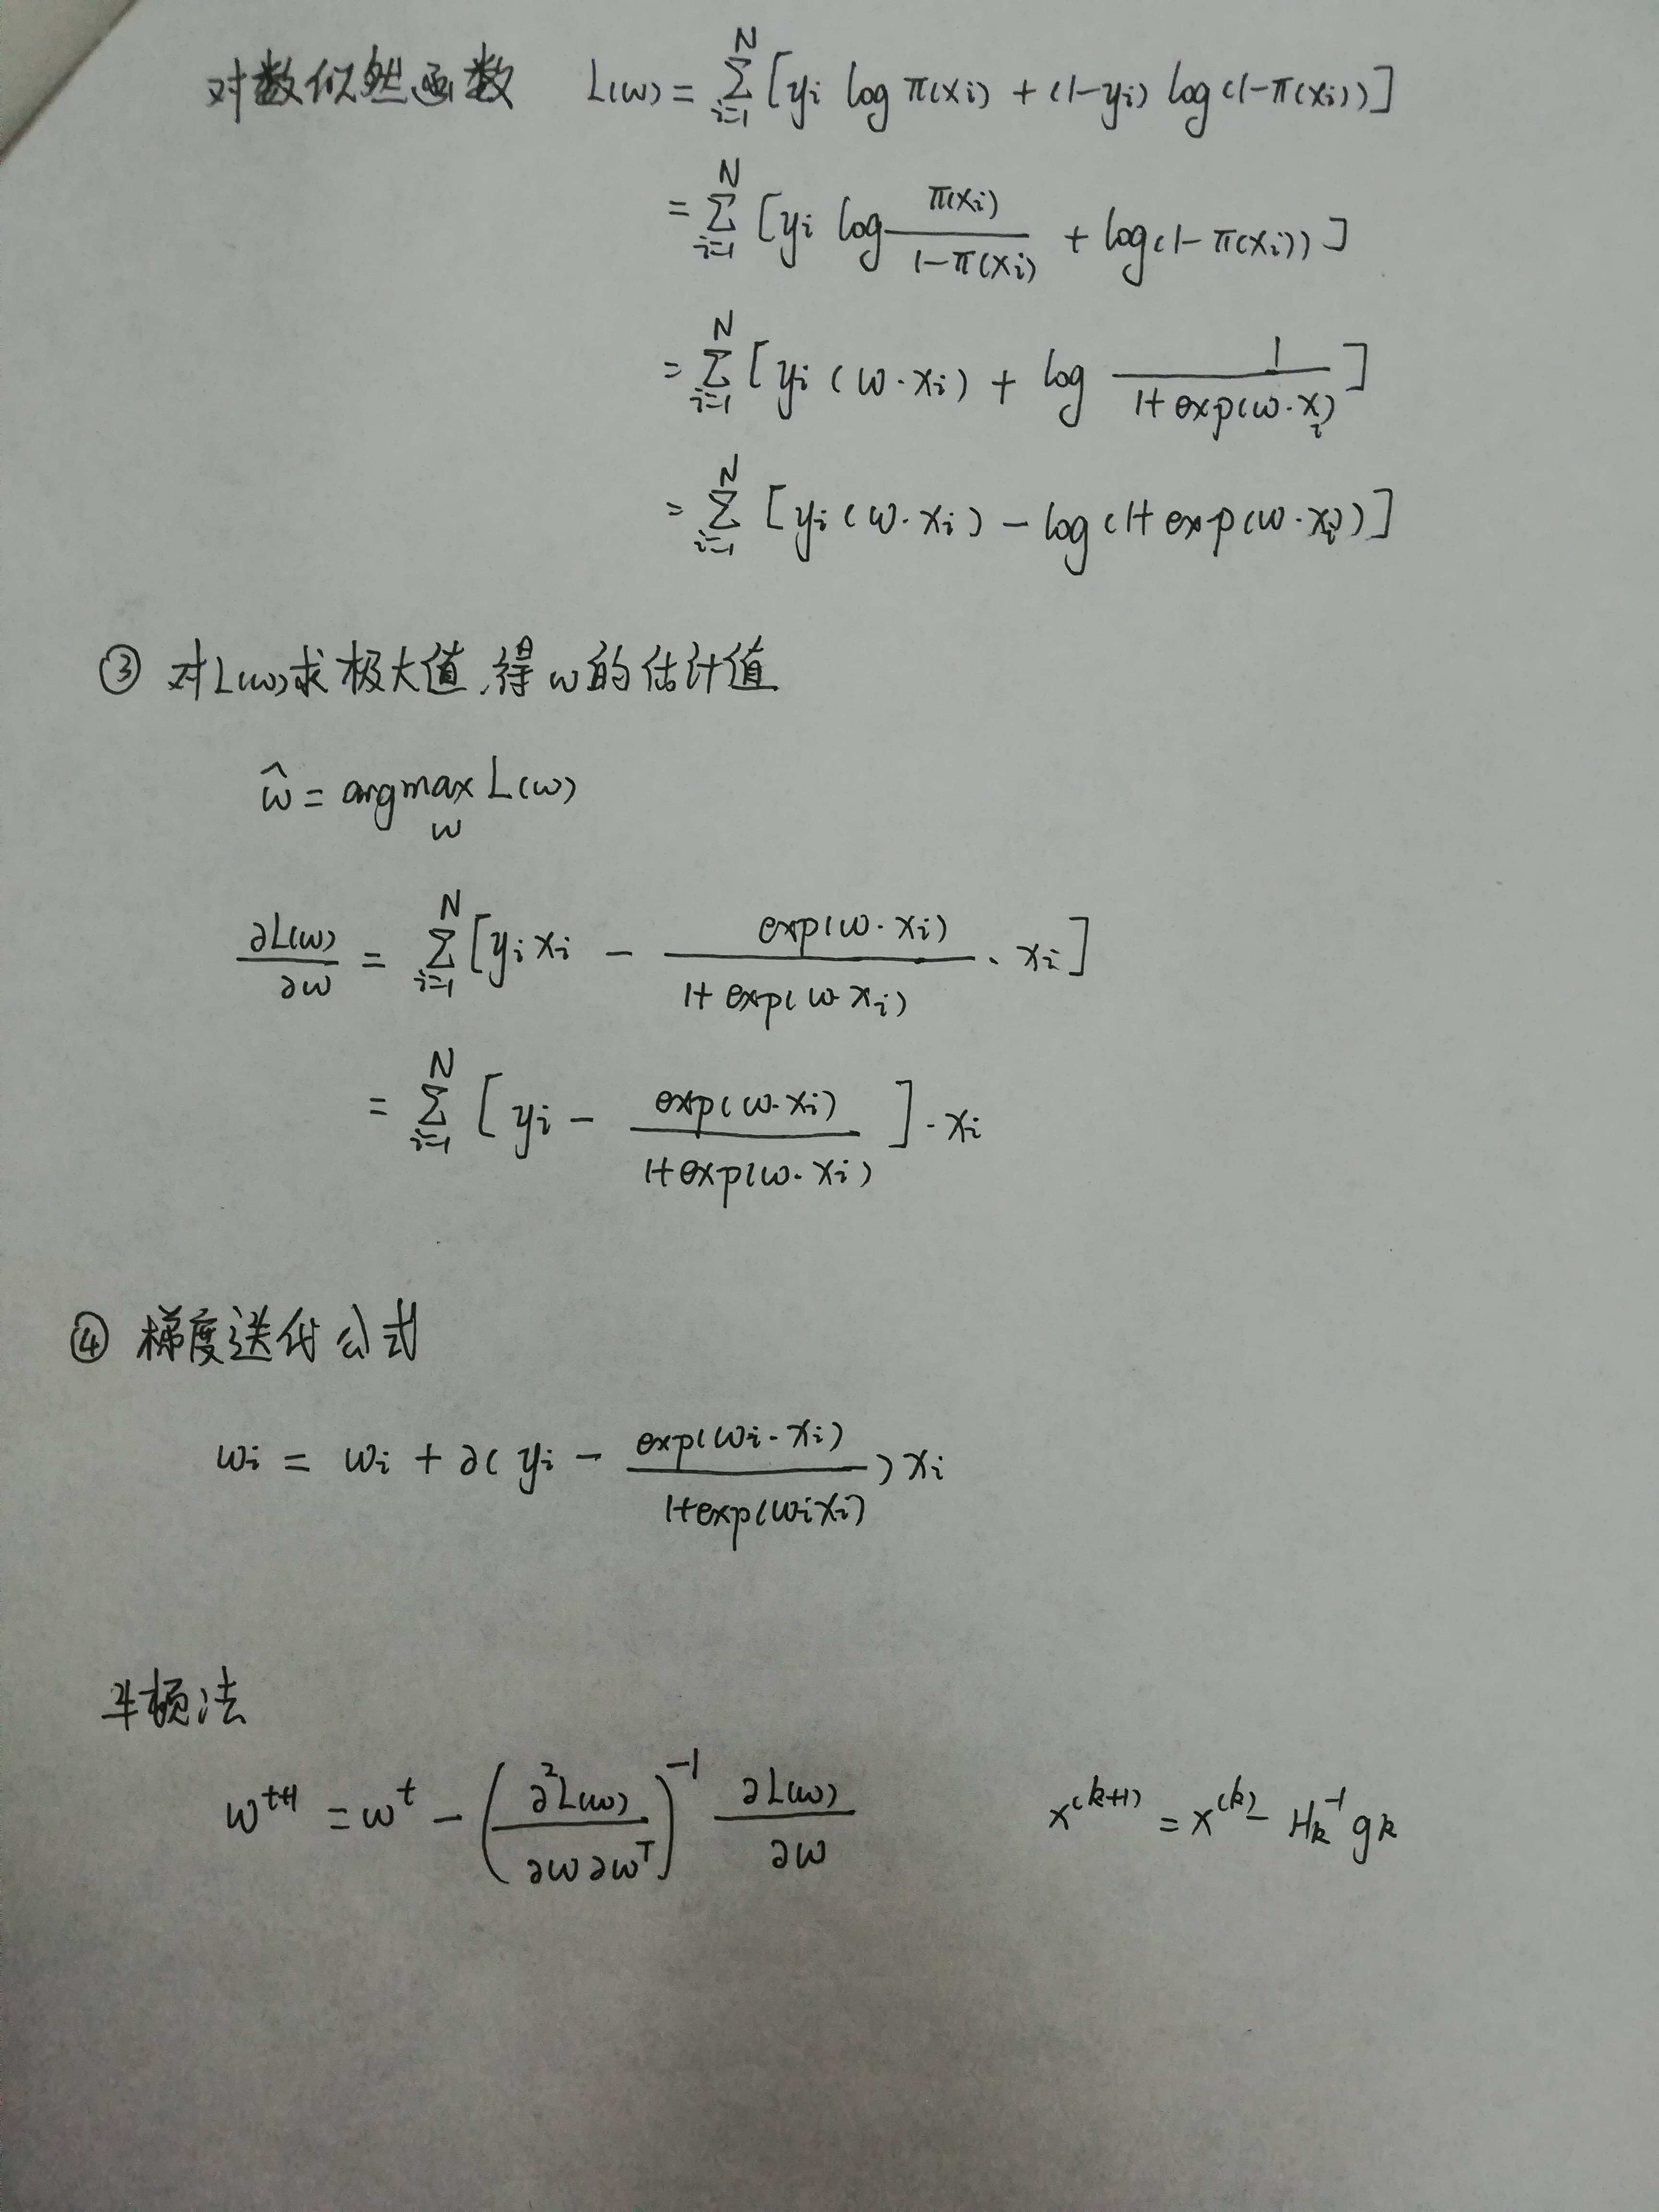 对数似然函数 L(w) = ∑_{i=1}^{N} [y_i log π(x_i) + (1-y_i) log(1-π(x_i))]
= ∑_{i=1}^{N} [y_i log π(x_i)/(1-π(x_i)) + log(1-π(x_i))]
= ∑_{i=1}^{N} [y_i (w·x_i) + log 1/(1+exp(w·x_i)]
= ∑_{i=1}^{N} [y_i (w·x_i) - log(1+exp(w·x_i))]
③ 对L(w)求极大值,得w的估计值
ŵ = argmax_w L(w)
∂L(w)/∂w = ∑_{i=1}^{N} [y_i x_i - exp(w·x_i)/(1+exp(w·x_i)) · x_i]
= ∑_{i=1}^{N} [y_i - exp(w·x_i)/(1+exp(w·x_i))] · x_i
④ 梯度迭代公式
w_i = w_i + ∂(y_i - exp(w_i·x_i)/(1+exp(w_i x_i))) x_i
牛顿法
w^{t+1} = w^t - (∂²L(w)/∂w∂w^T)^{-1} ∂L(w)/∂w x^{(k+1)} = x^{(k)} - H_k^{-1} g_k